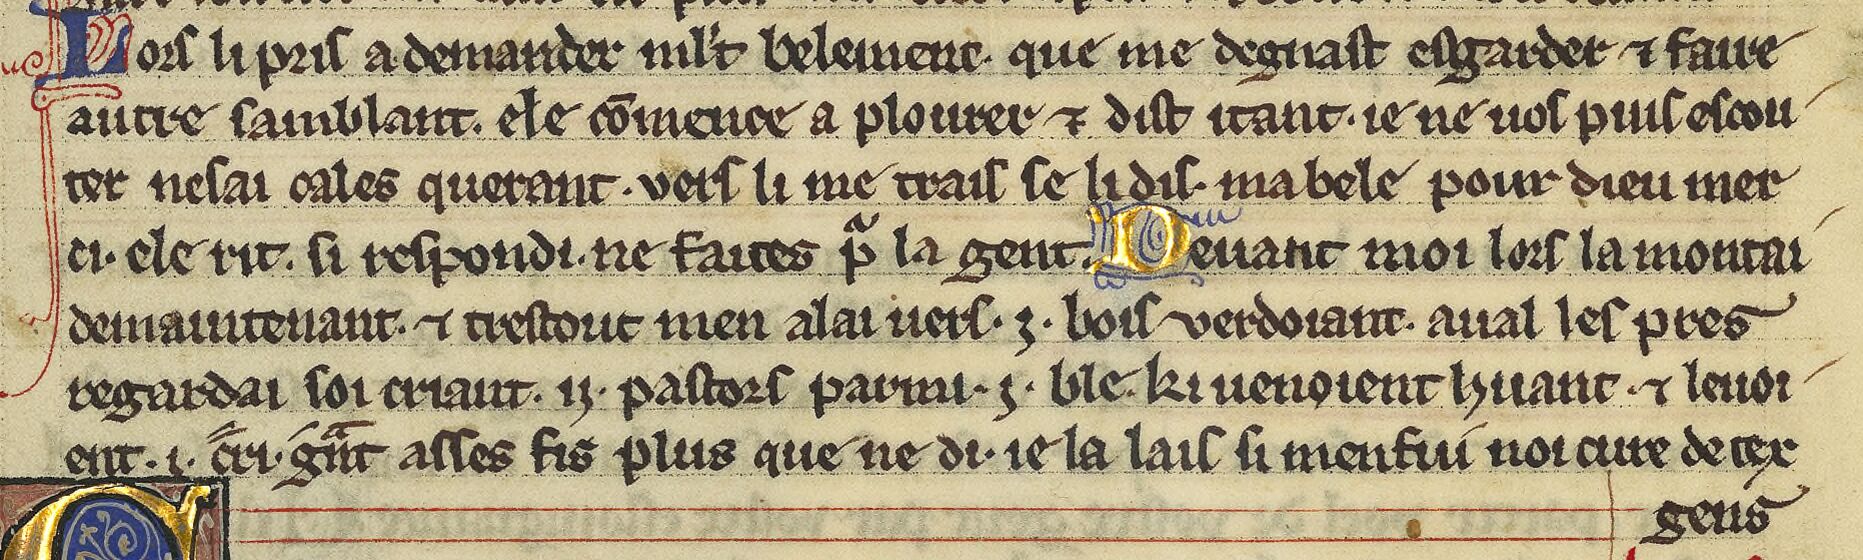 Lors li pris a demander ml't belement. que me degnast esgarder ⁊ faire
autre samblant. ele cōmence a plourer ⁊ dist itant. ie ne uos puis escou
ter ne sai cales querant. vers li me trais se li dis. ma bele pour dieu mer
ci. ele rit. si respondi. ne faites p̃ la gent. Deuant moi lors la montai
demaintenant. ⁊ trestout men alai uers .j. bois verdoiant. aual les pres
regardai soi criant. ij. pastors parmi .j. ble. ki uenoient huant. ⁊ leuoi
ent .i. cri gñt asses fis plus que ne di. ie la lais si menfui noi cure de tex
gens